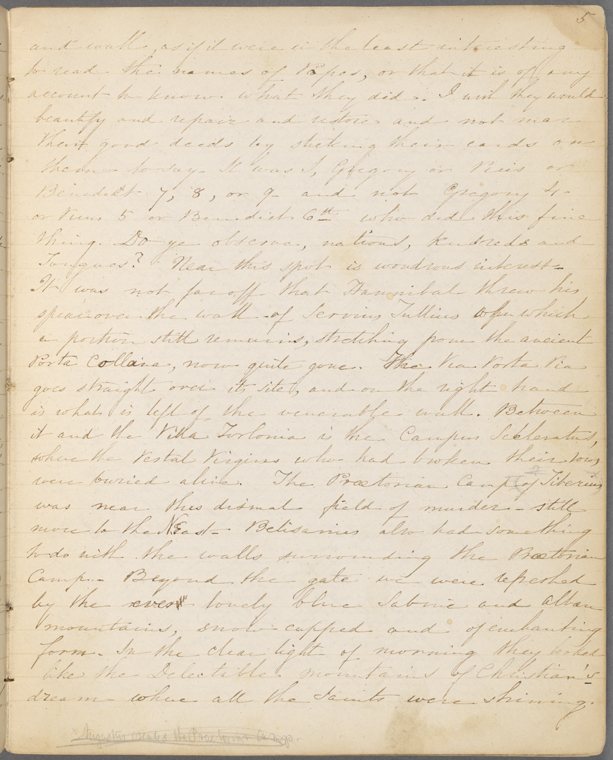 5
and walls, as if it were in the least interesting
to read the names of Popes, or that it is of any
account to know what they did. I wish they would
beautify and repair and restore and not mar
their good deeds by sticking their cards on
them to say It was I, Gregory or Pius or
Benedict 7, 8, or 9 and not Gregory 4
or Pius 5 or Benedict 6th who did this fine
thing. Do ye observe, nations, kindreds and
Tongues? Near this spot is wondrous interest.
It was not far off that Hannibal threw his
spear over the wall of Servius Tullius of which
a portion still remains, stretching from the ancient
Porta Collina, now quite gone. The Via Porta Pia
goes straight over its site, and on the right hand
is what is left of the venerable wall. Between
it and the Villa Torlonia is the Campus Sceleratus,
where the Vestal Virgins who had broken their vows
were buried alive. The Prætorian Camp of Tiberius
was near this dismal field of murder - still
more to the East - Belisarius also had something
to do with the walls surrounding the Prætorian
Camp. Beyond the gate we were refreshed
by the ever lovely blue Sabine and Alban
mountains, snow capped and of enchanting
form. In the clear light of morning they looked
like the Delectable mountains of Christian's
dream where all the Saints were shining.
Augustus created the Praetorian Camp